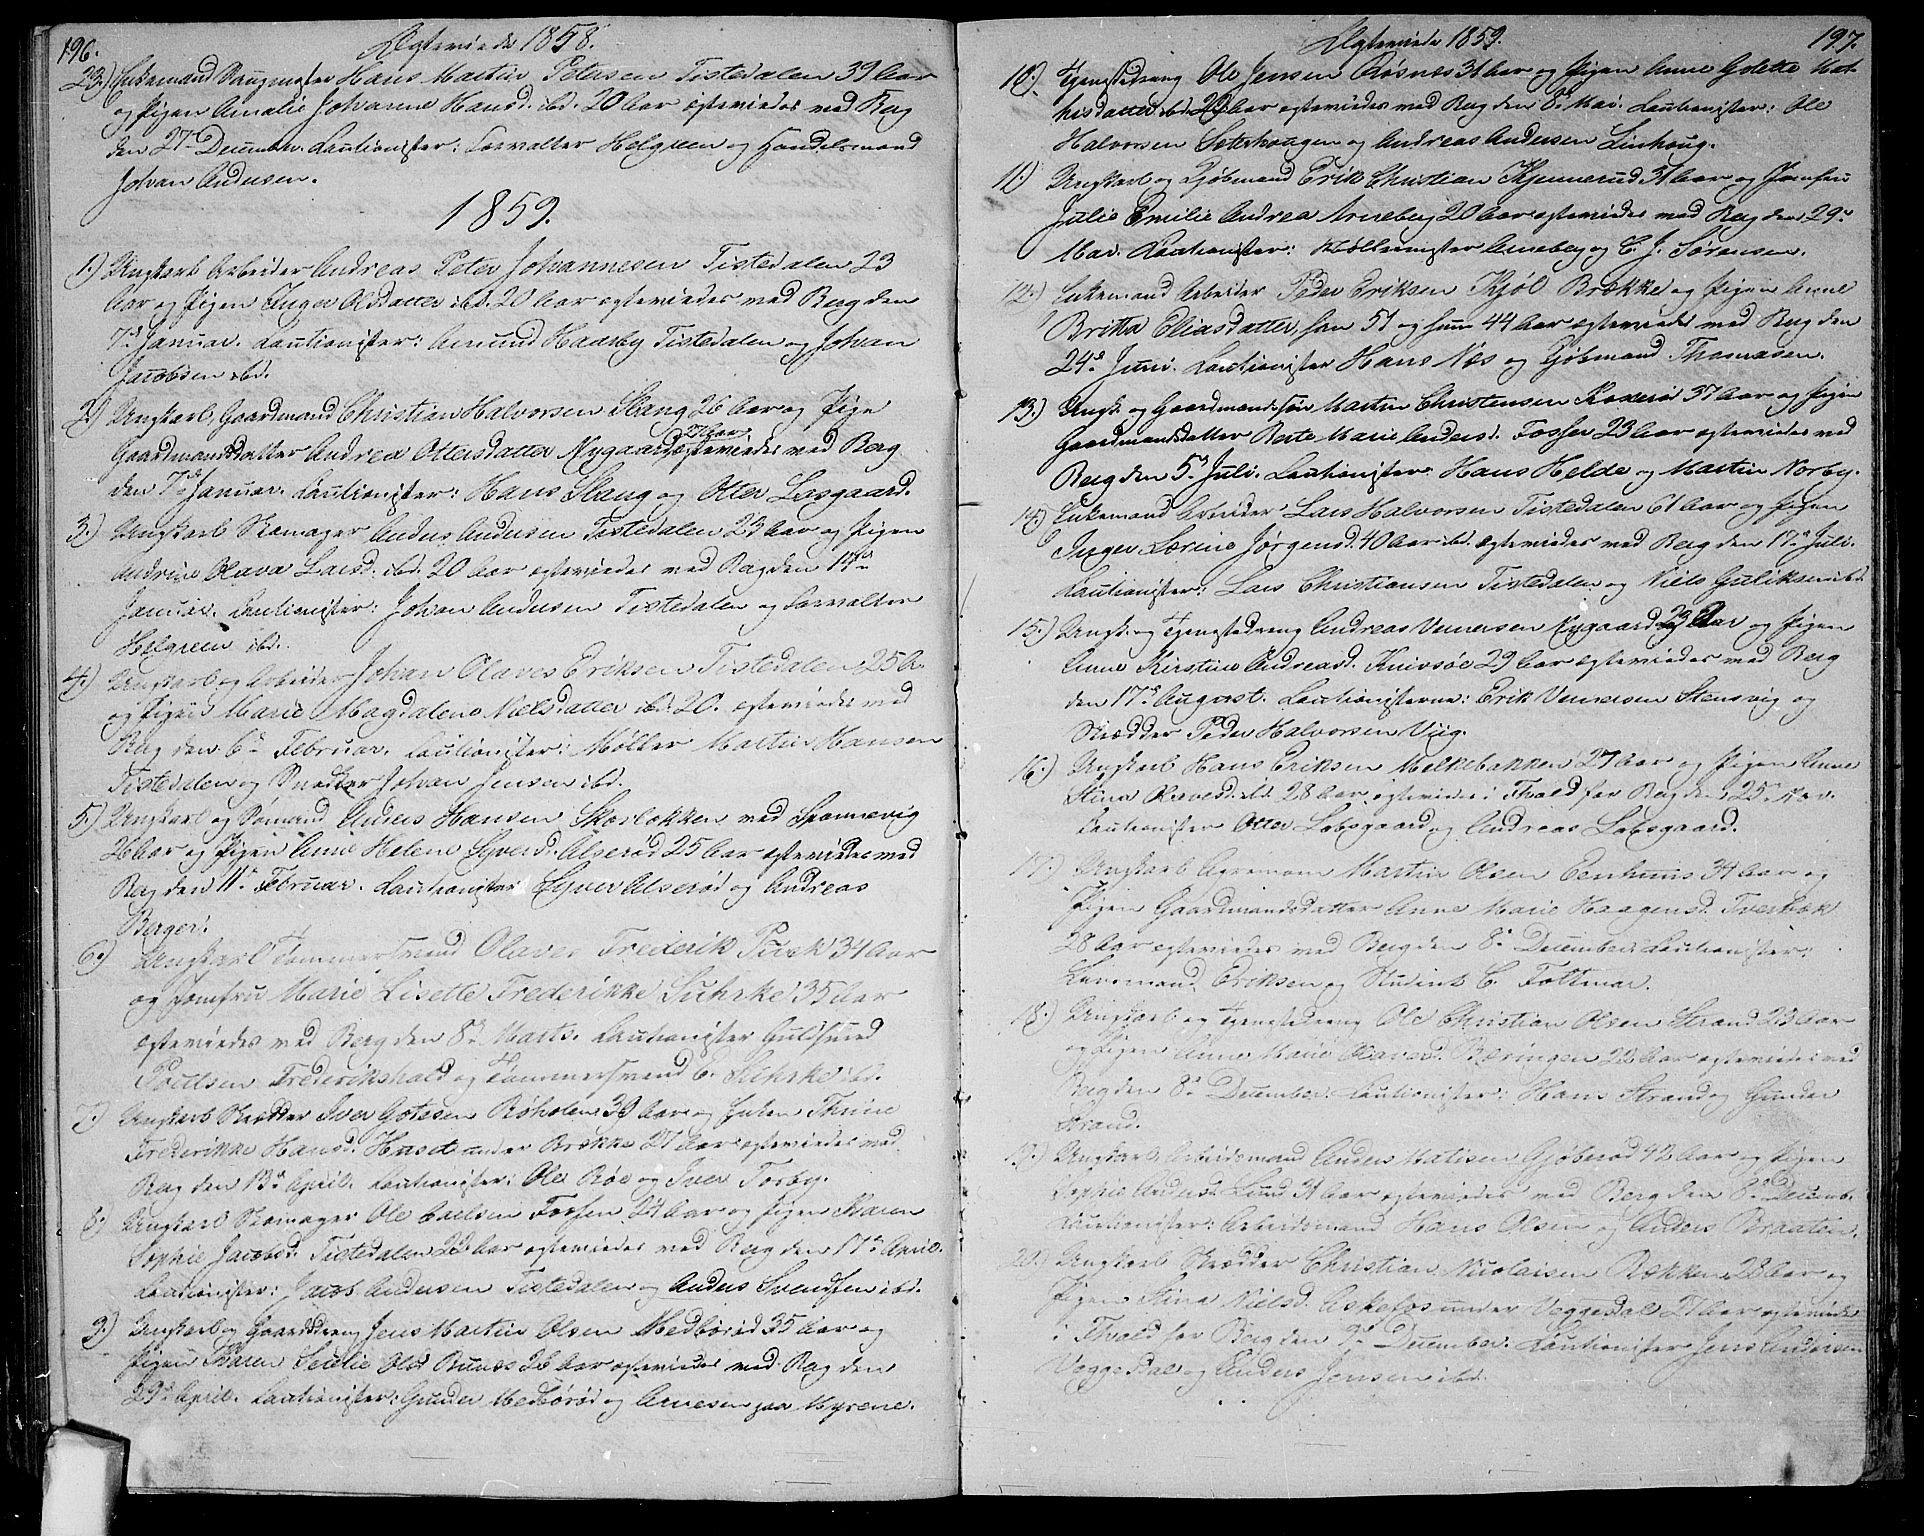 196.
Ægteviede 1858.
23.) Enkemand Brugmester Hans Martin Petersen Tistedalen 39 Aar
og Pigen Amalie Johanne Hansd. ibd. 20 Aar ægteviedes ved Berg
den 27de December. Cautionister: Forvalter Helgreen og Handelsmand
Johan Andersen.
1859.
1.) Ungkarl Arbeider Andreas Peter Johannesen Tistedalen 23
Aar og Pigen Inger Olsdatter ibd. 20 Aar ægteviedes ved Berg den
7de Januar. Cautionister: Amund Haarby Tistedalen og Johan
Jacobsen ibd.
2.) Ungkarl, Gaardmand Christian Halvorsen Stang 26 Aar og Pige
Gaardmandsdatter Andrea Ottersdatter Nygaard 21 Aar ægteviedes ved Berg
den 7de Januar. Cautionister: Hans Stang og Otter Lasgaard.
3.) Ungkarl Skomager Anders Andersen Tistedalen 23 Aar og Pigen
Andrine Olava Larsd. ibd. 20 Aar ægteviedes ved Berg den 14de
Januar. Cautionister: Johan Andersen Tistedalen og Forvalter
Helgreen ibd.
4.) Ungkarl og Arbeider Johan Olaves Eriksen Tistedalen 25 A.
og Pigen Marie Magdalene Nielsdatter ibd. 20. ægteviedes ved
Berg den 6te Februar. Cautionister: Møller Martin Hansen
Tistedalen og Snedker Johan Jensen ibd.
5.) Ungkarl og Sømand Anders Hansen Skarbækken ved Sponnevig
26 Aar og Pigen Anne Helene Syversd. Alserød 25 Aar ægteviedes ved
Berg den 11te Februar. Cautionister Syver Alserød og Andreas
Berger.
6.) Ungkarl Tømmersvend Olaves Frederik Puck 34 Aar
og Jomfru Marie Lisette Frederikke Suhrke 35 Aar
ægteviedes ved Berg den 8de Marts. Cautionister Guldsmed
Poulsen Frederikshald og Tømmersvend E. Suhrke ibd.
7.) Ungkarl Skrædder Iver Gotesen Røholen 39 Aar og Enken Thrine
Frederikke Hansd. Huset under Brekke 27 Aar ægteviedes ved
Berg den 13de April. Cautionister: Ole Røe og Iver Torby.
8.) Ungkarl Skomager Ole Carlsen Fossen 24 Aar og Pigen Karen
Sophie Jacobsd. Tistedalen 23 Aar ægteviedes ved Berg den 17de April.
Cautionister: Jacob Andersen Tistedalen og Anders Svendsen ibd.
9.) Ungkarl og Gaardsdreng Jens Martin Olsen Medbørød 35 Aar og
Pigen Karen Sesilie Olsd. Buaas 26 Aar ægteviedes ved Berg den
29de April. Cautionister: Gunder Medbørød og Arnesen paa Myrene.
Ægteviede 1859.
197.
10.) Tjenestedreng Ole Jensen Røsnæs 31 Aar og Pigen Anne Golette Mat-
hisdatter ibd. 29 Aar ægteviedes ved Berg den 8de Mai. Cautionister: Ole
Halvorsen Sæterhaugen og Andreas Andersen Linhoug.
11.) Ungkarl og Kjøbmand Erik Christian Kjennerud 31 Aar og Jomfru
Julie Emilie Andrea Arneberg 20 Aar ægteviedes ved Berg den 29de
Mai. Cautionister: Møllermester Arneberg og C. J. Sørensen.
12.) Enkemand Arbeider Peder Eriksen Kjøl Brekke og Pigen Anne
Britta Eliasdatter, han 51 og hun 44 Aar ægteviedes ved Berg den
24de Juni. Cautionister Hans Næs og Kjøbmand Thomasen.
13.) Ungk. og Gaardmandssøn Martin Christensen Kaserød 37 Aar og Pigen
Gaardmandsdatter Berte Marie Andersd. Fosser 23 Aar ægteviedes ved
Berg den 5te Juli. Cautionister Hans Helde og Martin Norby.
14.) Enkemand Arbeider Lars Halvorsen Tistedalen 61 Aar og Pigen
Inger Lærine Jørgensd. 40 Aar ibd. ægteviedes ved Berg den 17de Juli.
Cautionister: Lars Christiansen Tistedalen og Niels Guliksen ibd.
15.) Ungk. og Tjenestedreng Andreas Vernersen Nygaard 23 Aar og Pigen
Anne Kirstine Andreasd. Knivsøe 29 Aar ægteviedes ved Berg
den 17de August. Cautionisterne: Erik Vernersen Stensvig og
Skrædder Peder Halvorsen Viig.
16.) Ungkarl Hans Eriksen Melkebakken 27 Aar og Pigen Anne
Stina Olavesd. ibd. 28 Aar ægteviedes i Fhald for Berg den 25de Nov.
Cautionister Otter Labsgaard og Andreas Labsgaard.
17.) Ungkarl Agronom Martin Olsen Eenhuus 34 Aar og
Pigen Gaardmandsdatter Anne Marie Haagensd. Tverbæk
28 Aar ægteviedes ved Berg den 8de December. Cautionister:
Lensmand Eriksen og Student C. Foltmar.
18.) Ungkarl og Tjenestedreng Ole Christian Olsen Strand 23 Aar
og Pigen Anne Marie Olavesd. Bæringen 22 Aar ægteviedes ved
Berg den 8de December. Cautionister: Hans Strand og Gunder
Strand.
19.) Ungkarl Arbeidsmand Anders Matisen Gjøberød 42 Aar og Pigen
Sophie Andersd. Lund 31 Aar ægteviedes ved Berg den 8de Decemb.
Cautionister: Arbeidsmand Hans Olsen og Anders Braaten.
20.) Ungkarl Skrædder Christian Nicolaisen Bekken 28 Aar og
Pigen Stina Nielsd. Askefos under Veggedal 27 Aar ægteviedes
i Fhald for Berg den 9de December. Cautionister Jens Andersen
Veggedal og Anders Jensen ibd.